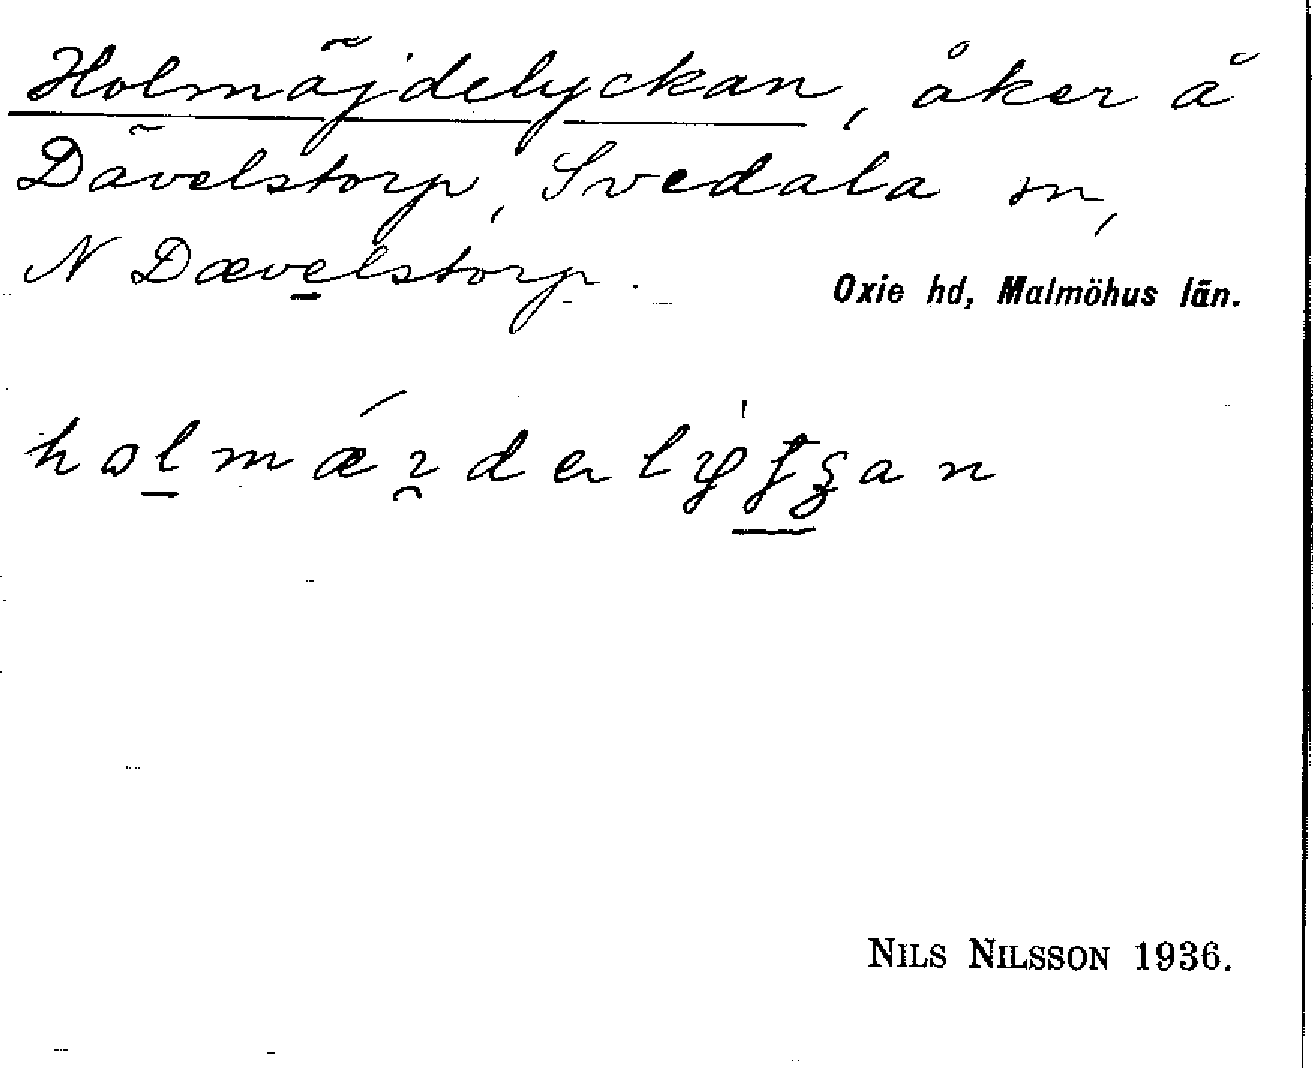 Holmäjdelyckan, åker å
Dävelstorp, Svedala sn,
N Dævelstorp.
Oxie hd, Malmöhus län.
NILS NILSSON 1936.